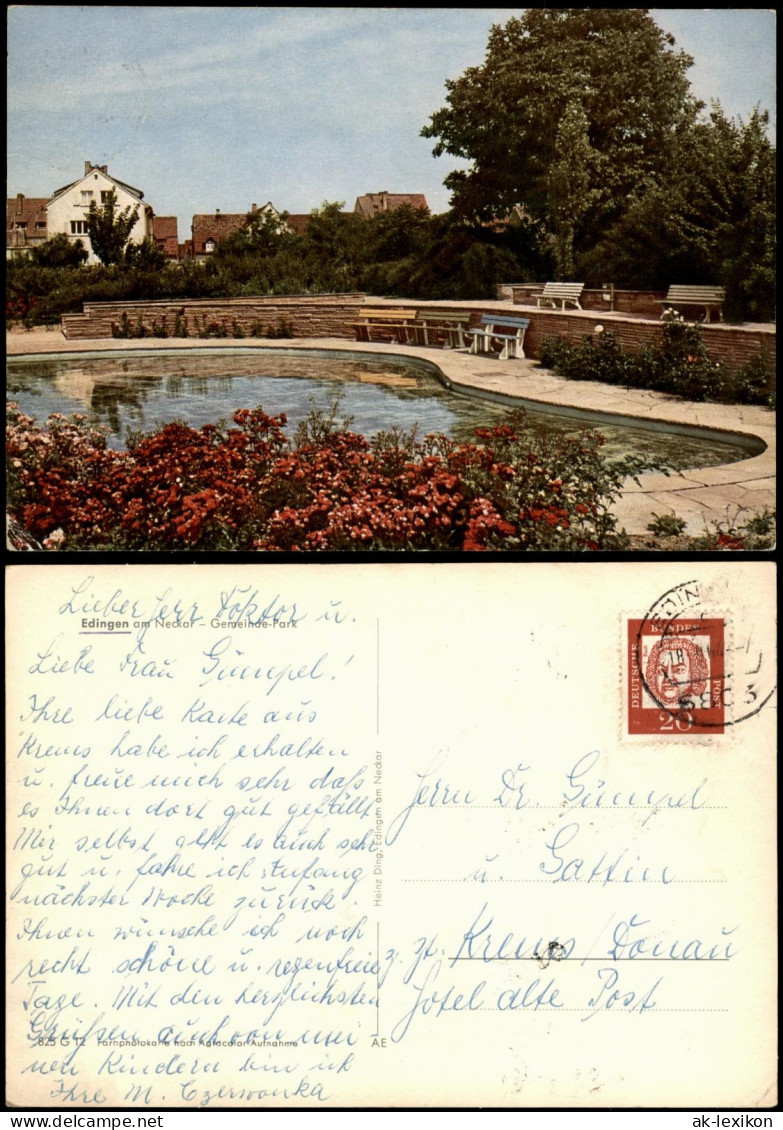 Lieber Herr Doktor u.
Edingen am Neckar – Gemeinde-Park
Liebe Frau Gümpel!
Ihre liebe Karte aus
Krems habe ich erhalten
u. freue mich sehr daß
es Ihnen dort gut gefällt
Mir selbst geht es auch sehr
gut u. fahre ich Anfang
nächster Woche zurück.
Ihnen wünsche ich noch
recht schöne u. regenfreie
Tage. Mit den herzlichsten
Grüßen auch von mei
825 G 12 Farbphotokarte nach Agfacolor-Aufnahme AE
nen Kindern bin ich
Ihre M. Czerwonka
Heinz Ding, Edingen am Neckar
DEUTSCHE BUNDES POST
20
EDIN
6803
Herrn Dr. Gümpel
u. Gattin
z. Zt. Krems/Donau
Hotel alte Post
ak-lexikon.com